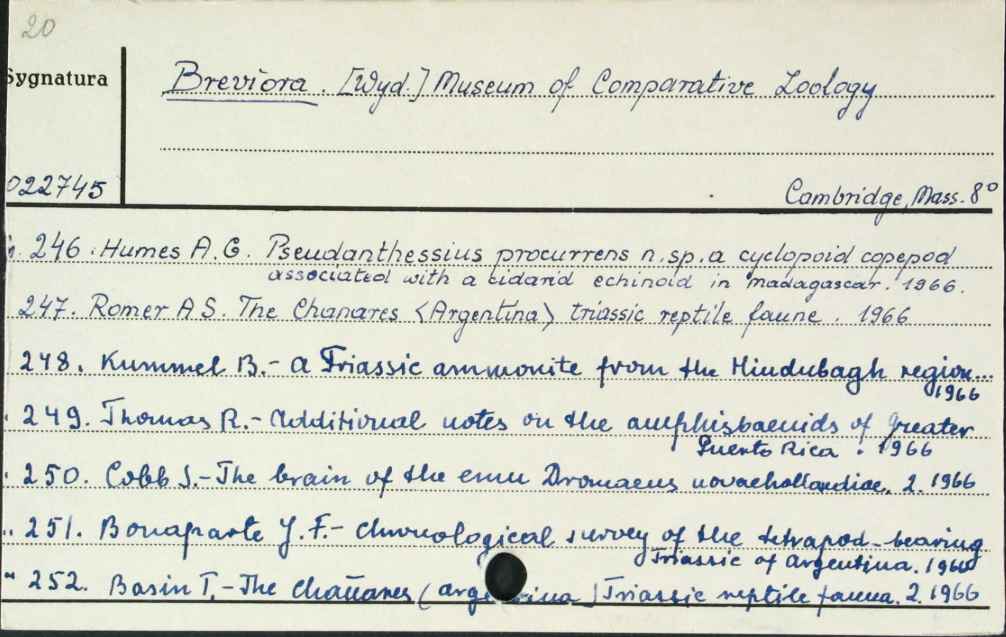 20
Sygnatura
Breviora. [Wyd.] Museum of Comparative Zoology
022745
Cambridge, Mass. 8°
246. Humes A.G. Pseudanthessius procurrens n.sp. a cyclopoid copepod
associated with a cidarid echinoid in Madagascar. 1966.
247. Romer A S. The Chanares <Argentina> triassic reptile faune. 1966
248. Kummel B.- A Triassic ammonite from the Hindubagh region...
1966
249. Thomas R.- Additional notes on the amphisbaenids of greater
Puerto Rica. 1966
250. Cobb S.- The brain of the emu Dromaeus novaehollandiae. 2. 1966
251. Bonaparte J.F.- Chronological survey of the tetrapod-bearing
Triassic of Argentina. 1966
" 252. Basin T.- The Chañares (Argentina) Triassic reptile fauna. 2. 1966